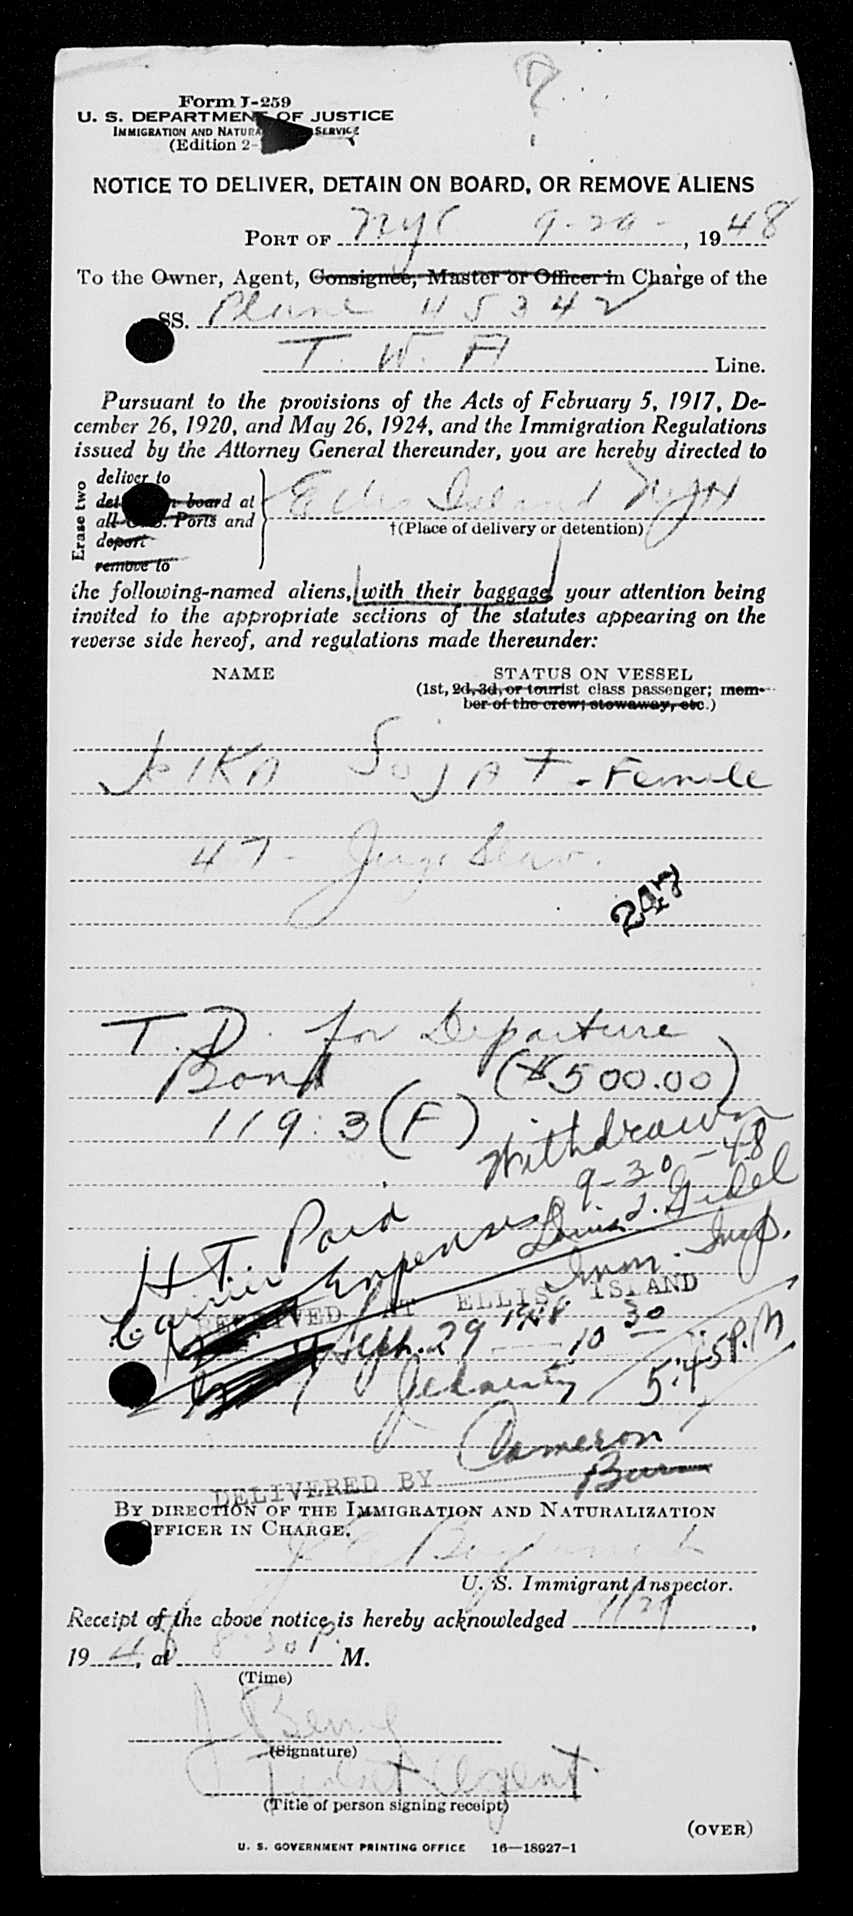 ?
Form I-259
U. S. DEPARTMENT OF JUSTICE
IMMIGRATION AND NATURA SERVICE
(Edition 2-
NOTICE TO DELIVER, DETAIN ON BOARD, OR REMOVE ALIENS
PORT OF NYC 9-29-, 1948
To the Owner, Agent, Consignee, Master or Officer in Charge of the
SS. Plane 45342
T. W. A Line.
Pursuant to the provisions of the Acts of February 5, 1917, De-
cember 26, 1920, and May 26, 1924, and the Immigration Regulations
issued by the Attorney General thereunder, you are hereby directed to
Erase two
deliver to
det board at
all U.S. Ports and
deport
remove to
Ellis Island NYH
†(Place of delivery or detention)
the following-named aliens, with their baggage, your attention being
invited to the appropriate sections of the statutes appearing on the
reverse side hereof, and regulations made thereunder:
NAME STATUS ON VESSEL
(1st, 2d, 3d, or tourist class passenger; mem-
ber of the crew; stowaway, etc.)
SOJAT - Female
47 - Jugo Slav.
247
T.D. for Departure
Bond ($500.00)
119:3(F)
Withdrawn
9-30-48
Louis J.
Imm. Insp.
HT Paid
Carrier Expenses
RECEIVED AT ELLIS ISLAND
Sept. 29 1948 10 30
5:45 P.M
Cameron
DELIVERED BY
BY DIRECTION OF THE IMMIGRATION AND NATURALIZATION
OFFICER IN CHARGE.
U. S. Immigrant Inspector.
Receipt of the above notice is hereby acknowledged 9/29,
1948, at 8 30 P. M.
(Time)
J Berry
(Signature)
Ticket Agent.
(Title of person signing receipt)
(OVER)
U. S. GOVERNMENT PRINTING OFFICE 16—18927-1